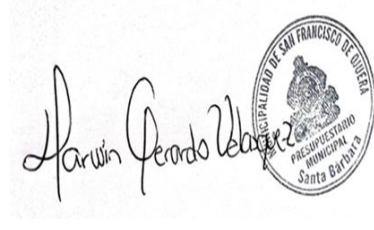 Harwin Gerardo Velasquez
MUNICIPALIDAD DE SAN FRANCISCO DE OJUERA
PRESUPUESTARIO
MUNICIPAL
Santa Bárbara